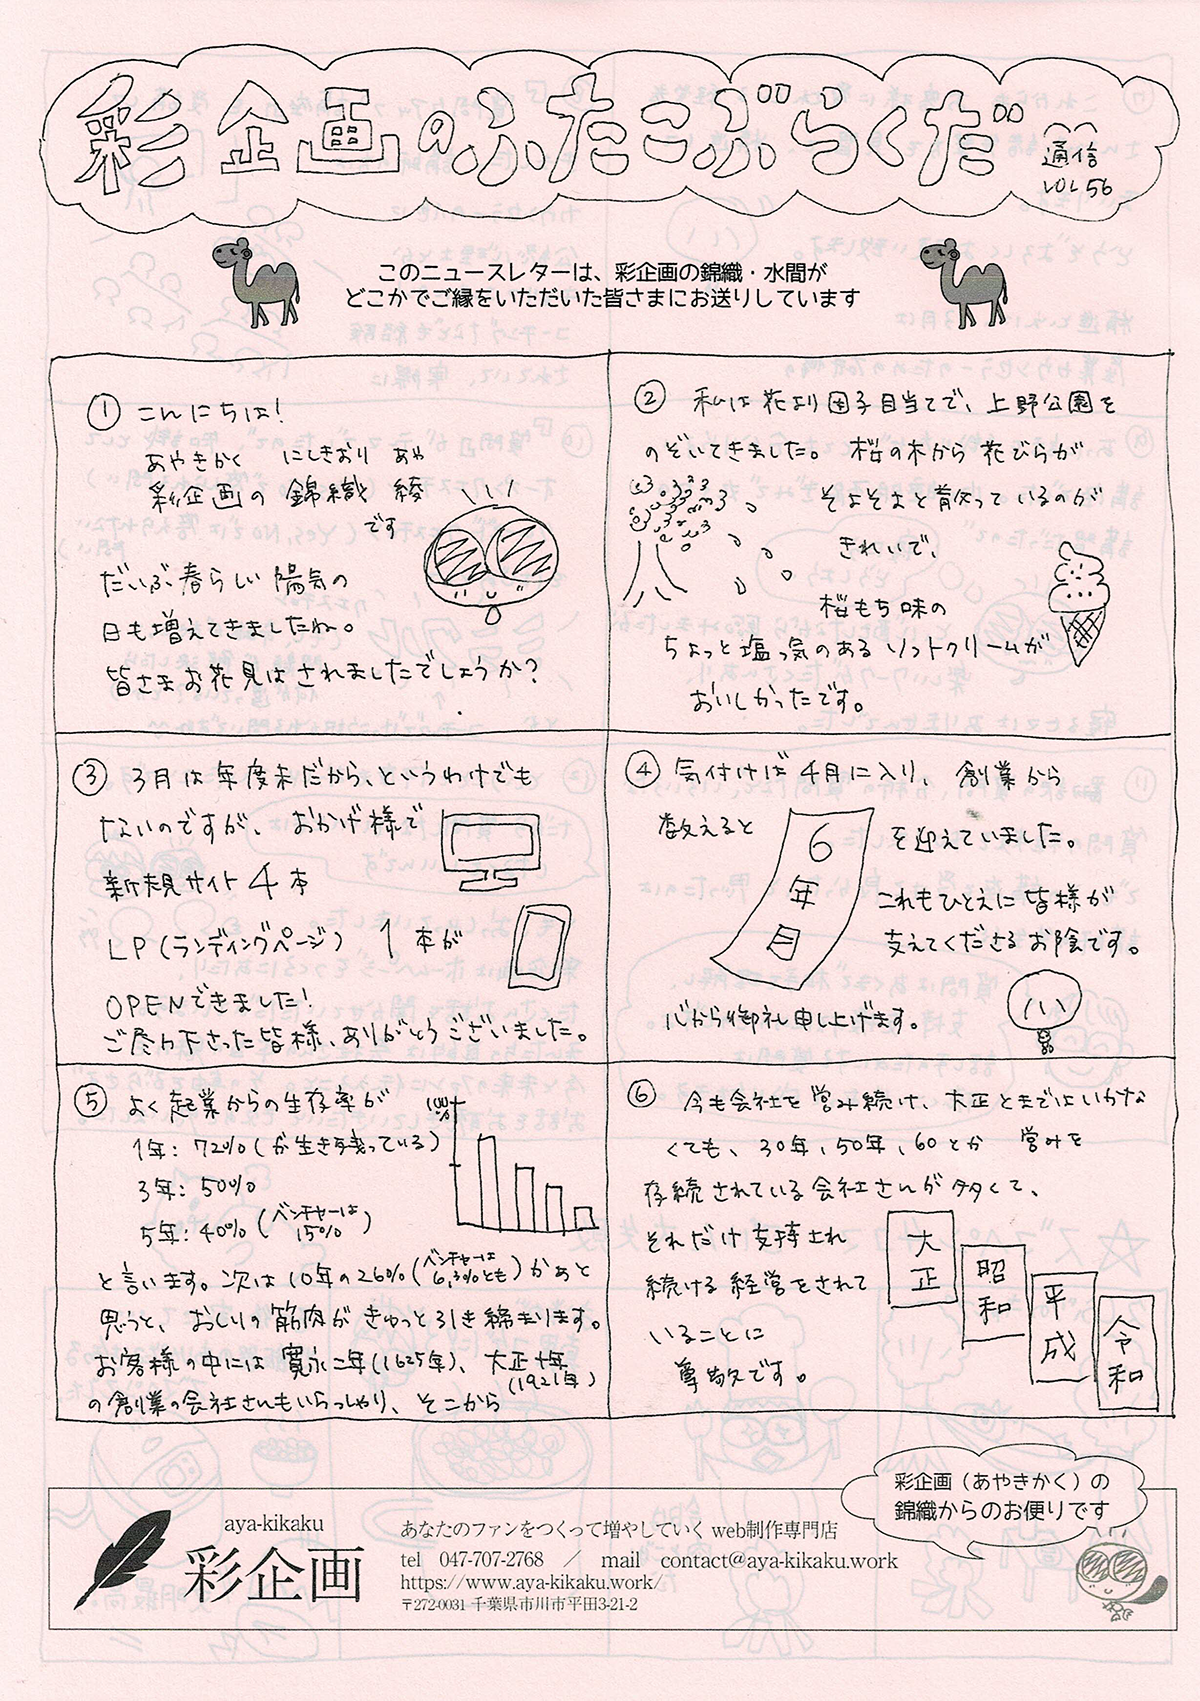 彩企画のふたこぶらくだ
通信
VOL 56
このニュースレターは、彩企画の錦織・水間が
どこかでご縁をいただいた皆さまにお送りしています
① こんにちは!
あやきかく にしきおり あや
彩企画の 錦織 綾
です
だいぶ春らしい陽気の
日も増えてきましたね。
皆さまお花見はされましたでしょうか?
② 私は花より団子目当てで、上野公園を
のぞいてきました。桜の木から花びらが
そよそよと散っているのが
きれいで、
桜もち味の
ちょっと塩っ気のあるソフトクリームが
おいしかったです。
③ 3月は年度末だから、というわけでも
ないのですが、おかげ様で
新規サイト4本
LP(ランディングページ) 1本が
OPENできました!
ご尽力下さった皆様、ありがとうございました。
④ 気付けば4月に入り、創業から
数えると
6
年
目
を迎えていました。
これもひとえに皆様が
支えてくださるお陰です。
心から御礼申し上げます。
⑤ よく起業からの生存率が
1年:72%(が生き残っている)
3年:50%
5年:40%(ベンチャーは
15%)
100%
と言います。次は10年の26%(ベンチャーは
6,3%とも)かぁと
思うと、おしりの筋肉がきゅっと引き締まります。
お客様の中には寛永二年(1625年)、大正十年
(1921年)
の創業の会社さんもいらっしゃり、そこから
⑥ 今も会社を営み続け、大正とまではいかな
くても、30年、50年、60とか 営みを
存続されている会社さんが多くて、
それだけ支持され
続ける経営をされて
いることに
尊敬です。
大正
昭和
平成
令和
彩企画(あやきかく)の
錦織からのお便りです
aya-kikaku
彩企画
あなたのファンをつくって増やしていく web制作専門店
tel 047-707-2768 / mail contact@aya-kikaku.work
https://www.aya-kikaku.work/
〒272-0031 千葉県市川市平田3-21-2